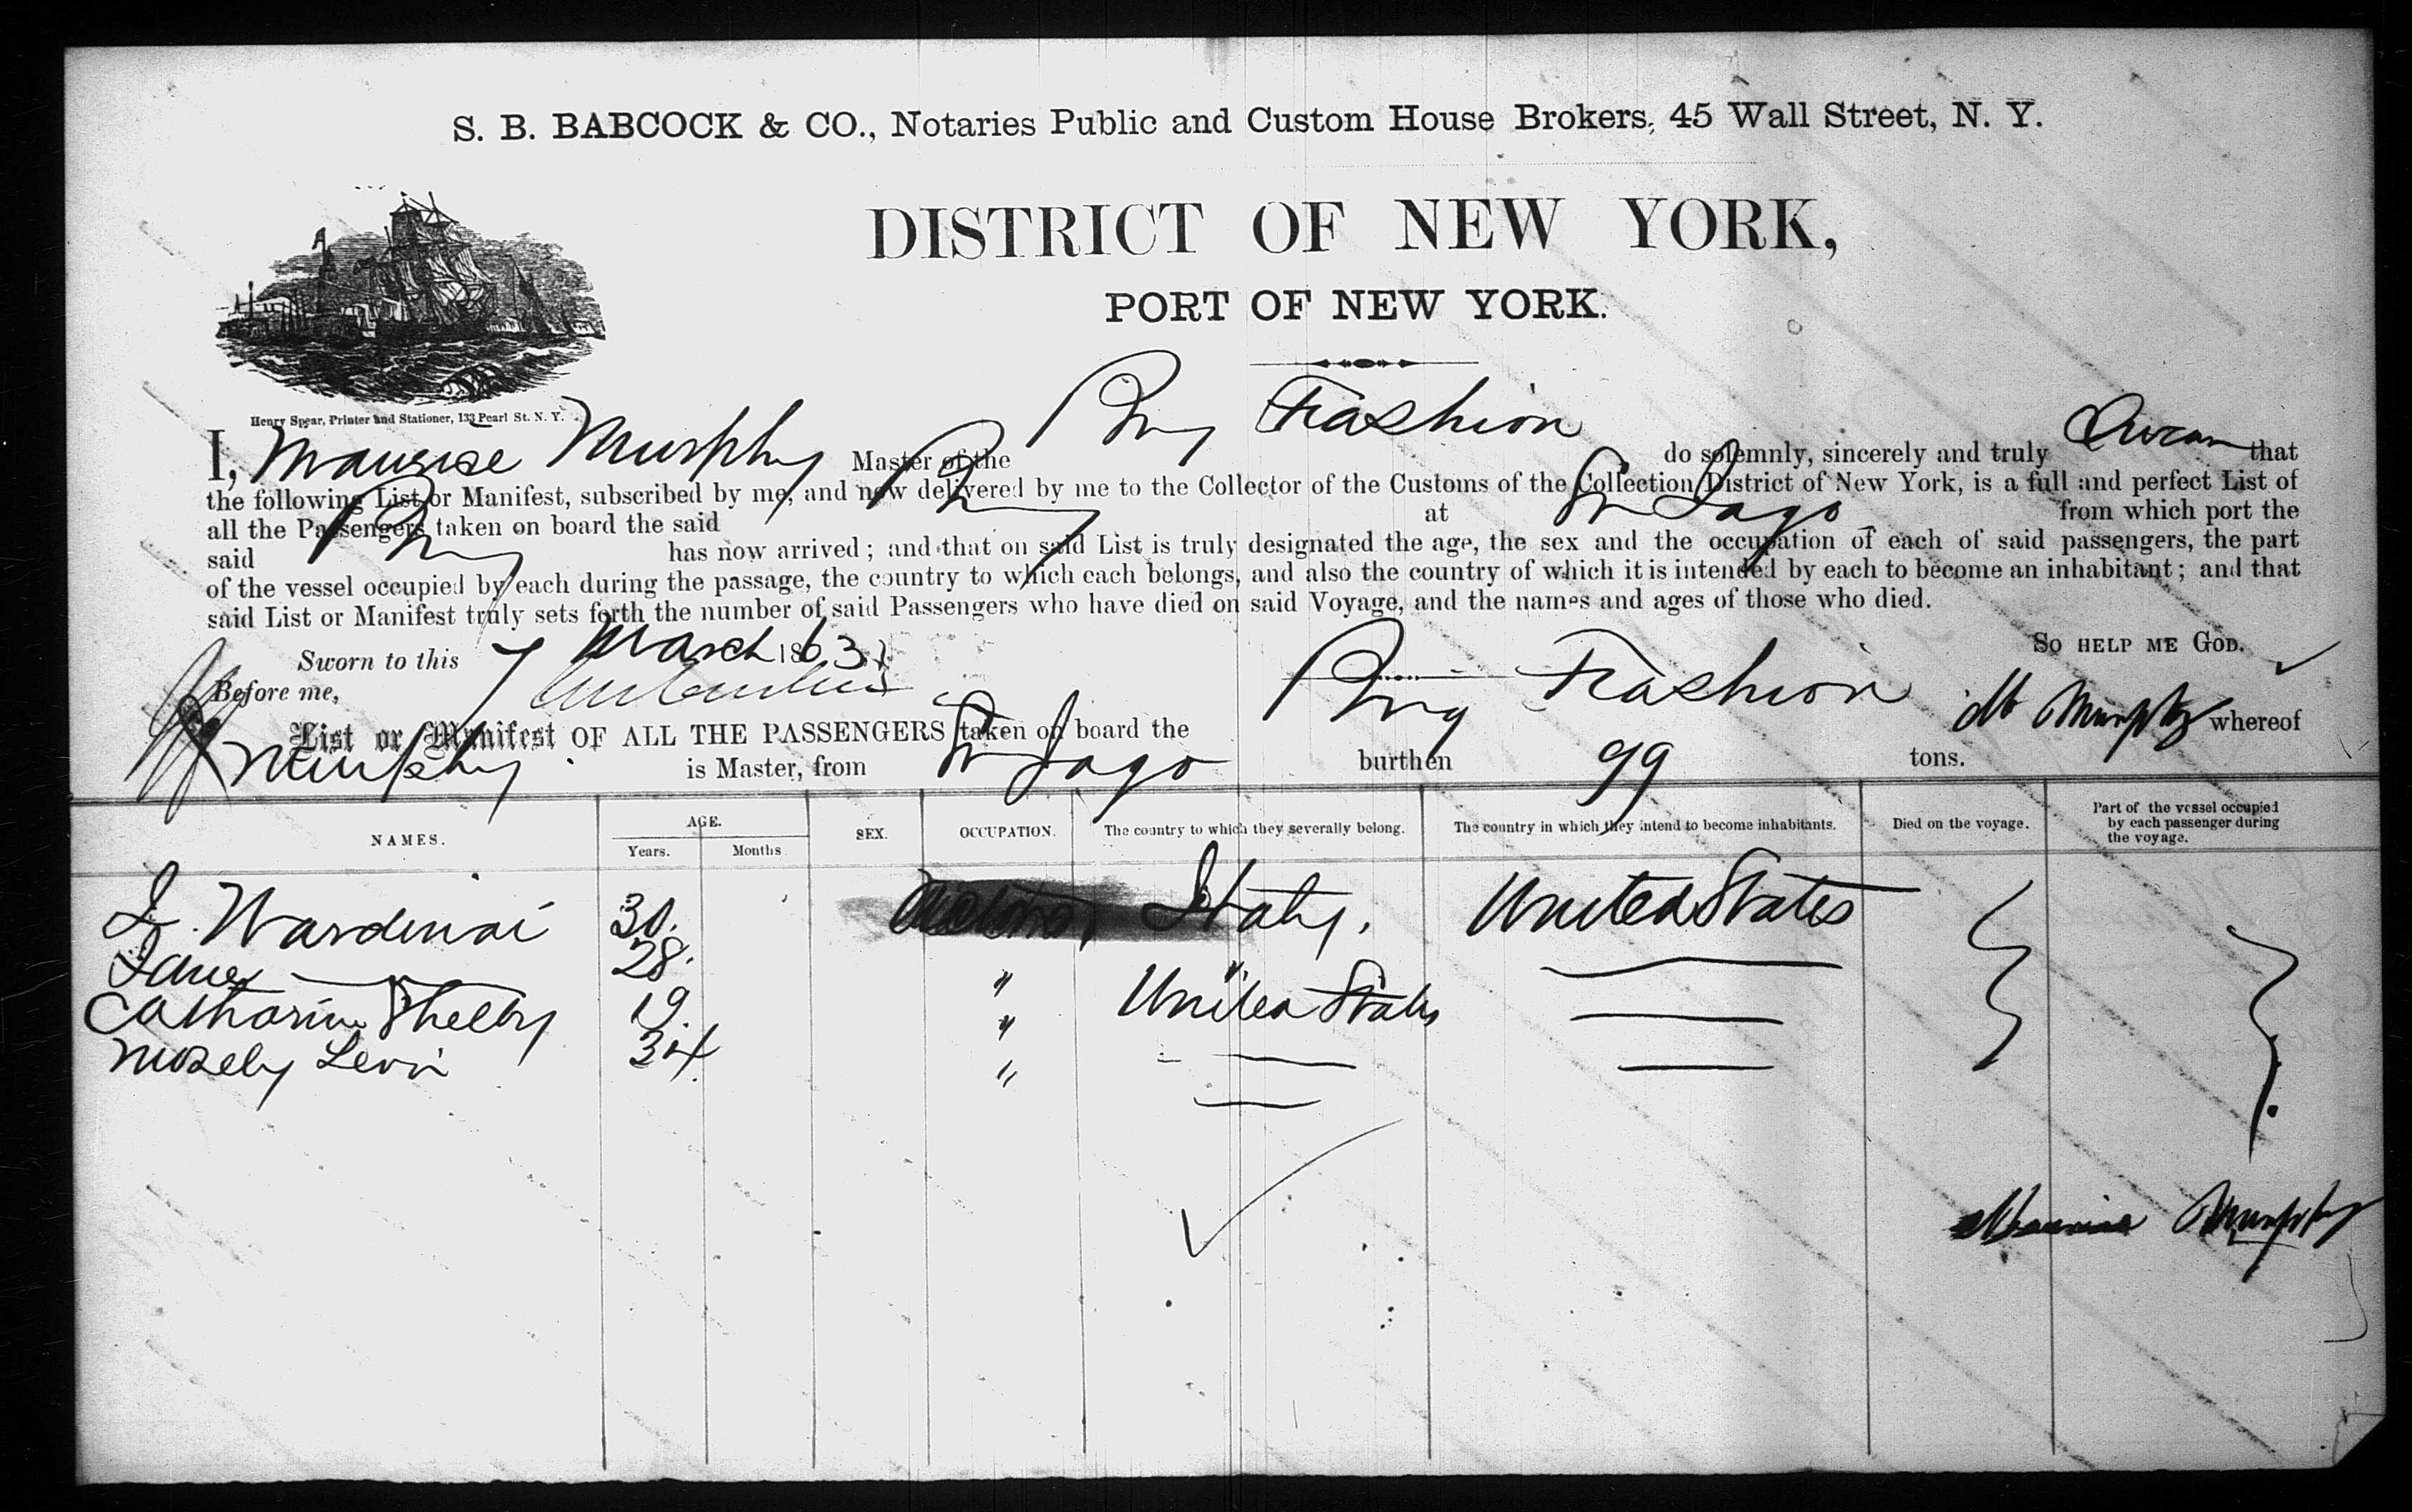 S. B. BABCOCK & CO., Notaries Public and Custom House Brokers, 45 Wall Street, N. Y.
DISTRICT OF NEW YORK,
PORT OF NEW YORK.
Henry Spear, Printer and Stationer, 133 Pearl St. N. Y.
I, Maurise Murphy Master of the Brig Fashion do solemnly, sincerely and truly Swear that
the following List or Manifest, subscribed by me, and now delivered by me to the Collector of the Customs of the Collection District of New York, is a full and perfect List of
all the Passengers taken on board the said Brig at St Jago from which port the
said Brig has now arrived; and that on said List is truly designated the age, the sex and the occupation of each of said passengers, the part
of the vessel occupied by each during the passage, the country to which each belongs, and also the country of which it is intended by each to become an inhabitant; and that
said List or Manifest truly sets forth the number of said Passengers who have died on said Voyage, and the names and ages of those who died.
SO HELP ME GOD.
Sworn to this 7 March 1863
Before me,
List or Manifest OF ALL THE PASSENGERS taken on board the Brig Fashion M Murphy whereof
Murphy is Master, from St Jago burthen 99 tons.
NAMES. AGE. Years. Months SEX. OCCUPATION. The country to which they severally belong. The country in which they intend to become inhabitants. Died on the voyage. Part of the vessel occupied by each passenger during the voyage.
30. Italy. United States
Jane 28. " "
Catharine Shelby 19. " United States
Mosely Levi 34. "
Maurise Murphy